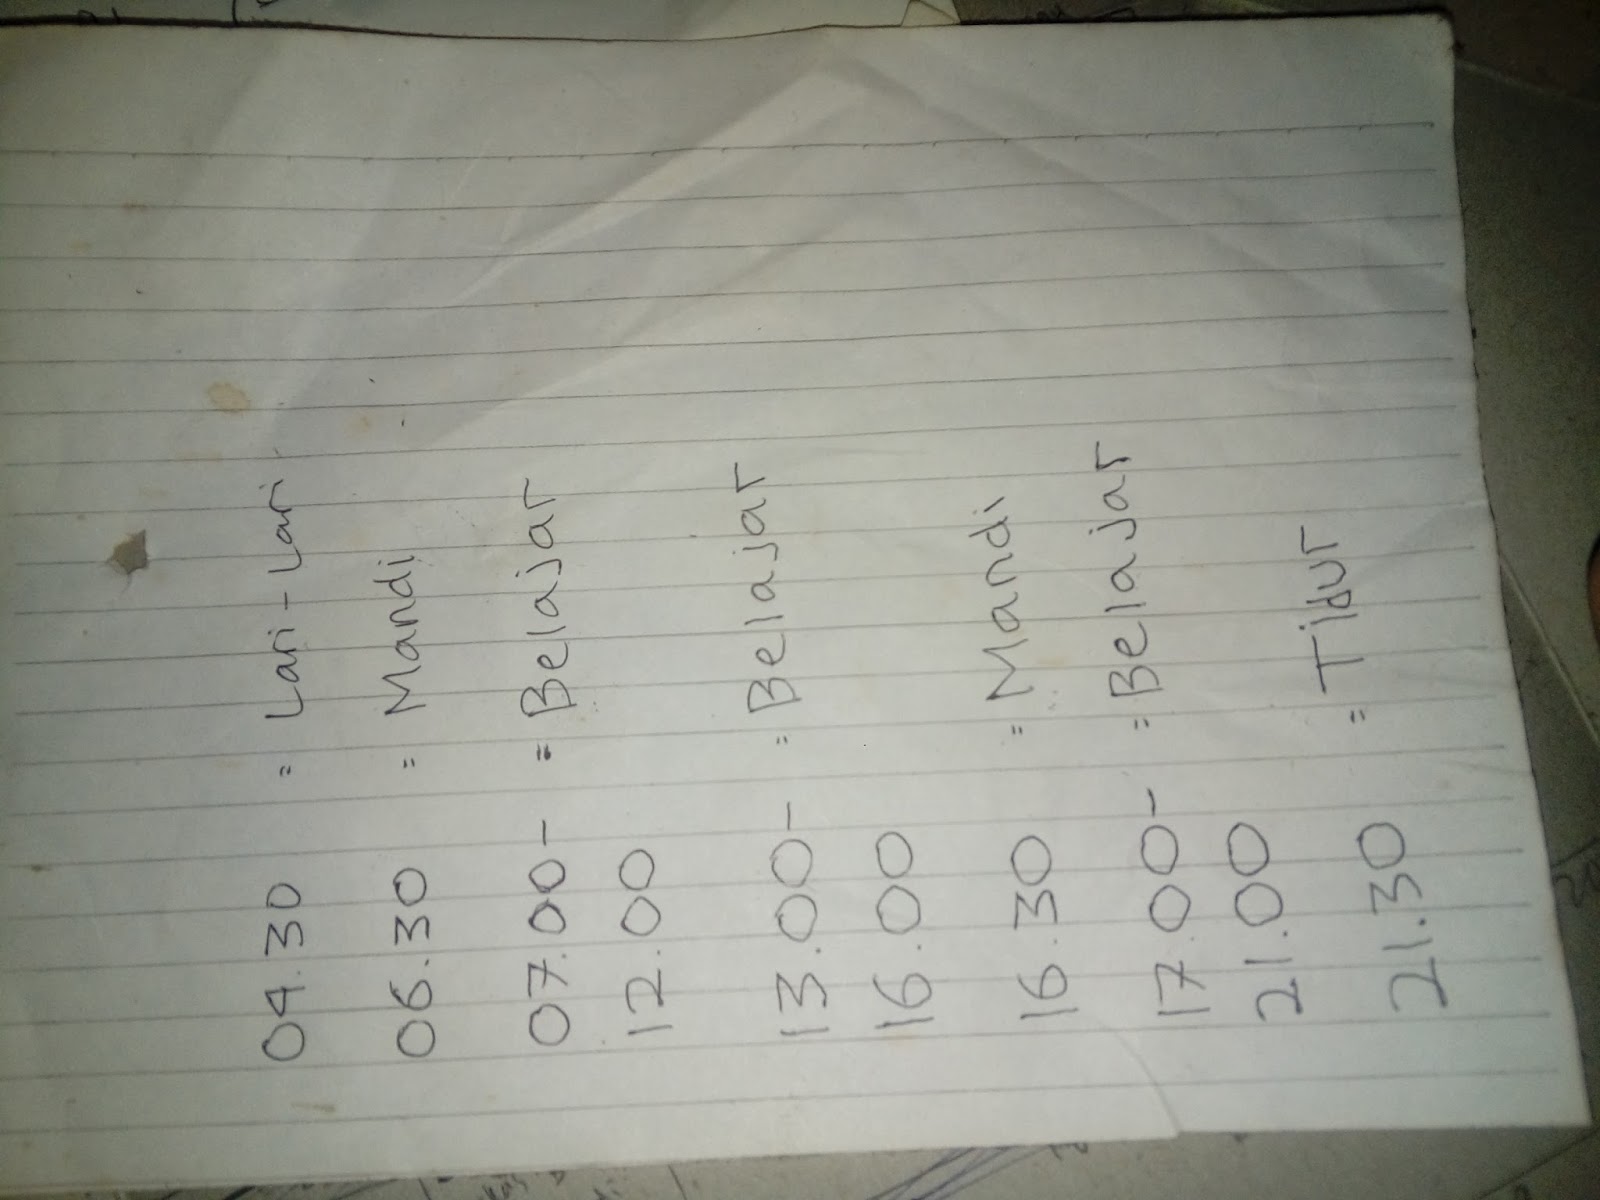 04.30 = Lari-Lari
06.30 = Mandi
07.00- = Belajar
12.00
13.00- = Belajar
16.00
16.30 = Mandi
17.00- = Belajar
21.00
21.30 = Tidur